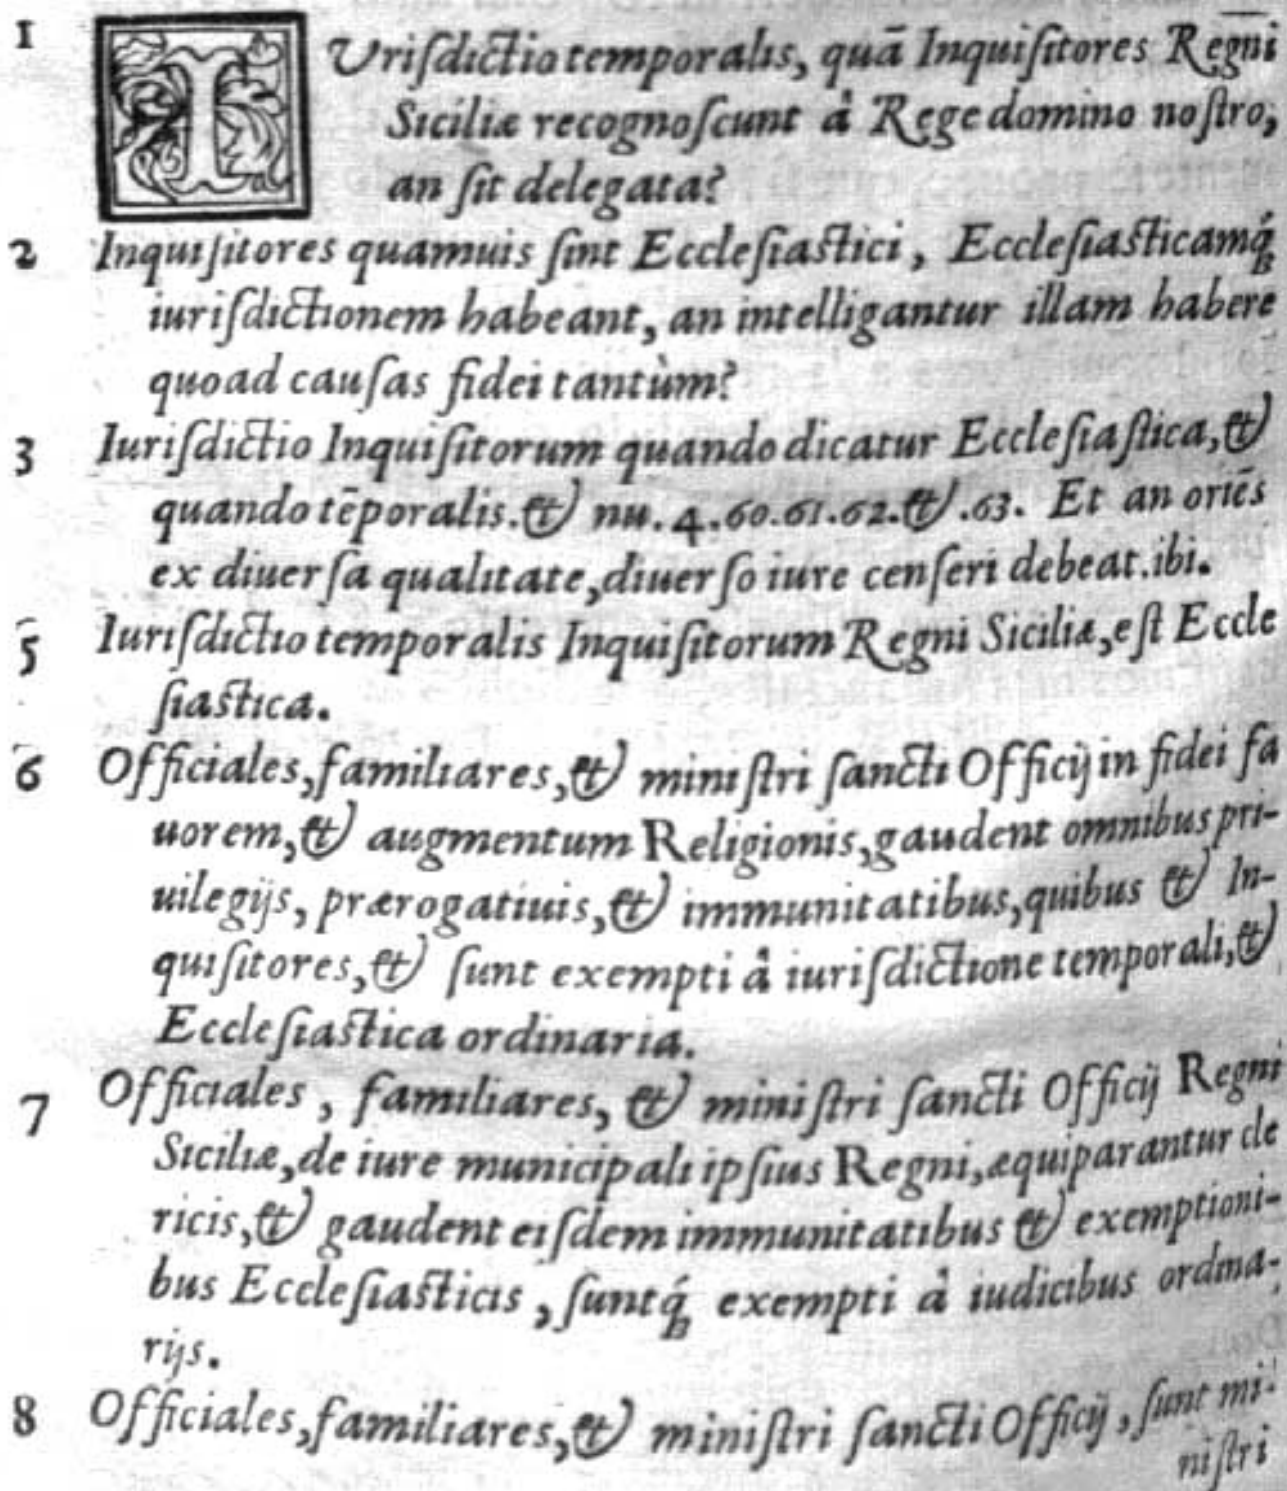 1 IUriſdictio temporalis, quā Inquiſitores Regni
Siciliæ recognoſcunt à Rege domino noſtro,
an ſit delegata?
2 Inquiſitores quamuis ſint Eccleſiaſtici, Eccleſiaſticamq́;
iuriſdictionem habeant, an intelligantur illam habere
quoad cauſas fidei tantùm?
3 Iuriſdictio Inquiſitorum quando dicatur Eccleſiaſtica, &
quando tēporalis. & nu. 4.60.61.62.& .63. Et an oriēs
ex diuerſa qualitate, diuerſo iure cenſeri debeat. ibi.
5 Iuriſdictio temporalis Inquiſitorum Regni Siciliæ, eſt Eccle
ſiaſtica.
6 Officiales, familiares, & miniſtri ſancti Officij in fidei fa
uorem, & augmentum Religionis, gaudent omnibus pri-
uilegijs, prærogatiuis, & immunitatibus, quibus & In-
quiſitores, & ſunt exempti à iuriſdictione temporali, &
Eccleſiaſtica ordinaria.
7 Officiales, familiares, & miniſtri ſancti Officij Regni
Siciliæ, de iure municipali ipſius Regni, æquiparantur cle
ricis, & gaudent eiſdem immunitatibus & exemptioni-
bus Eccleſiaſticis, ſuntq́; exempti à iudicibus ordina-
rijs.
8 Officiales, familiares, & miniſtri ſancti Officij, ſunt mi-
niſtri